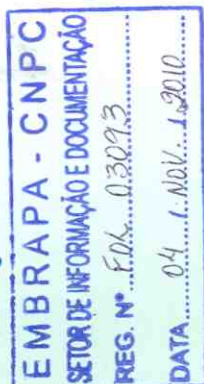 EMBRAPA - CNPC
SETOR DE INFORMAÇÃO E DOCUMENTAÇÃO
REG. Nº FOL 03093
DATA 04 / NOV. / 2010